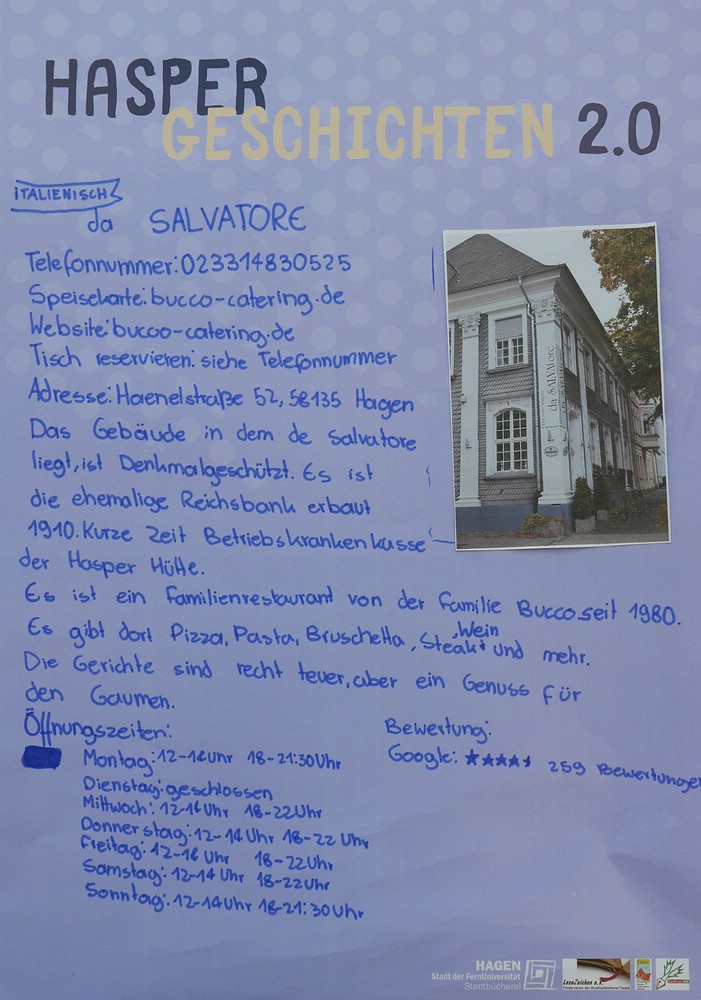 HASPER
GESCHICHTEN 2.0
iTALIENISCH
da SALVATORE
Telefonnummer: 023314830525
Speisekarte: bucco-catering.de
Website: bucco-catering.de
Tisch reservieren: siehe Telefonnummer
Adresse: Haenelstraße 52, 58135 Hagen
Das Gebäude in dem de Salvatore
liegt, ist Denkmalgeschützt. Es ist
die ehemalige Reichsbank erbaut
1910. Kurze Zeit Betriebskrankenkasse
der Hasper Hütte.
Es ist ein Familienrestaurant von der Familie Bucco seit 1980.
Es gibt dort Pizza, Pasta, Bruschetta, Steak, Wein und mehr.
Die Gerichte sind recht teuer, aber ein Genuss für
den Gaumen.
Öffnungszeiten:
Montag: 12-14Uhr 18-21:30Uhr
Dienstag: geschlossen
Mittwoch: 12-14Uhr 18-22Uhr
Donnerstag: 12-14Uhr 18-22Uhr
Freitag: 12-14Uhr 18-22Uhr
Samstag: 12-14Uhr 18-22Uhr
Sonntag: 12-14Uhr 18-21:30Uhr
Bewertung:
Google: ★★★★ 259 Bewertungen
da SALVAtore
HAGEN
Stadt der FernUniversität
Stadtbücherei
LeseZeichen e.V.